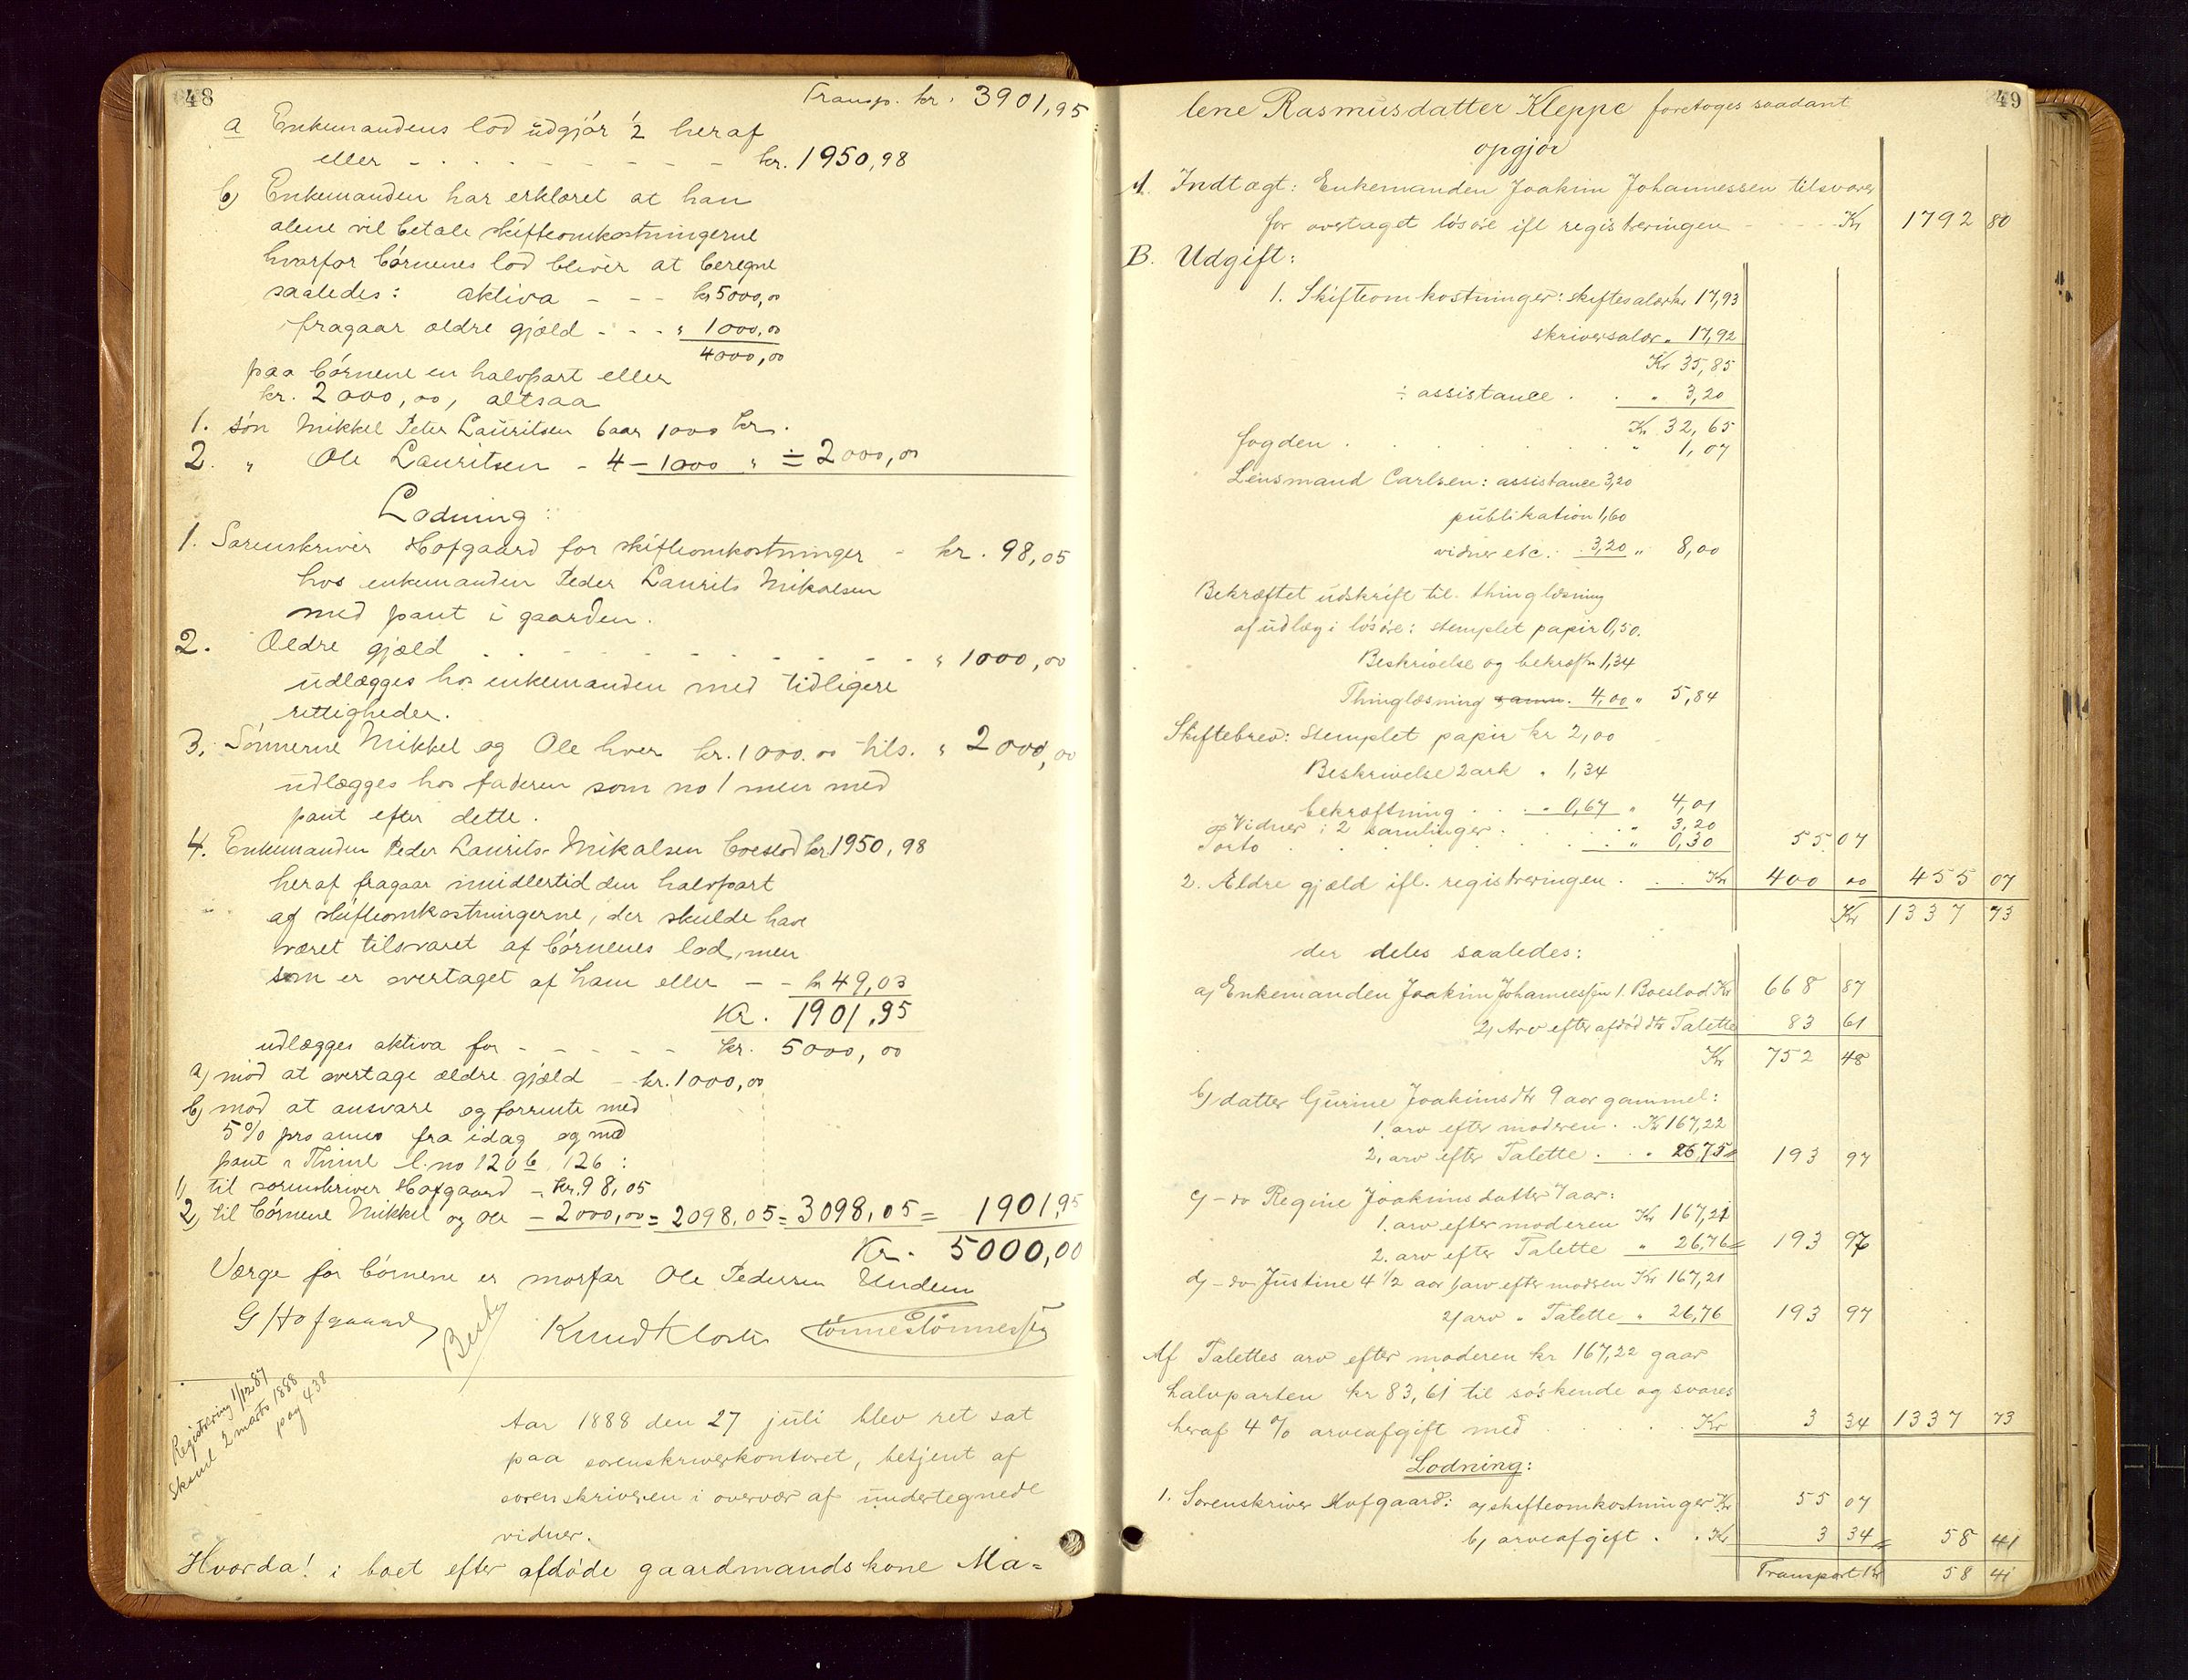 48
Transp. kr. 3901,95
a Enkemandens lod udgjør 1/2 heraf
eller - - - - - kr. 1950,98
b) Enkemanden har erklæret at han
alene vil betale skifteomkostningerne
hvorfor børnenes lod bliver at beregne
saaledes: aktiva - - - kr 5000,00
fragaar ældre gjæld - - - " 1000,00
4000,00
paa børnene en halvpart eller
kr. 2000,00, altsaa
1. søn Mikkel Peter Lauritsen 6 aar 1000 kr.
2. " Ole Lauritsen - 4 - 1000 " ÷ 2000,00
Lodning:
1. Sorenskriver Hofgaard for skifteomkostninger - kr. 98,05
hos enkemanden Peder Laurits Mikalsen
med pant i gaarden.
2. Ældre gjæld . . . . . " 1000,00
udlægges hos enkemanden med tidligere
rettigheder.
3. Sønnerne Mikkel og Ole hver kr. 1000.00 tils. " 2000,00
udlægges hos faderen som no 1 men med
pant efter dette.
4. Enkemanden Peder Laurits Mikalsen boeslod kr 1950,98
heraf fragaar imidlertid den halvpart
af skifteomkostningerne, der skulde have
været tilsvaret af børnenes lod, men
som er overtaget af ham eller - - kr 49,03
Kr. 1901,95
udlægges aktiva for - - - - - kr. 5000,00
a) mod at overtage ældre gjæld - kr. 1000,00
b) mod at ansvare og forrente med
5% pro anno fra idag og med
pant i Thime l. no 120 b, 126:
1) til sorenskriver Hofgaard - kr. 98,05
2) til børnene Mikkel og Ole - 2000,00 = 2098,05 = 3098,05 = 1901,95
Kr. 5000,00
Værge for børnene er morfar Ole Pedersen Undem
G Hofgaard Knud Kloster Tønnes Tønnessen
Registrering 1/12 87
Sksml 2 marts 1888
pag 438
Aar 1888 den 27 juli blev ret sat
paa sorenskriverkontoret, betjent af
sorenskriveren i overvær af undertegnede
vidner.
Hvorda! i boet efter afdøde gaardmandskone Ma=
49
lene Rasmusdatter Kleppe foretoges saadant
opgjør
A. Indtægt: Enkemanden Joakim Johannessen tilsvarer
for overtaget løsøre ifl registreringen - - - - Kr 1792 80
B. Udgift:
1. Skifteomkostninger: skiftesalær kr 17,93
skriversalær " 17,92
Kr 35,85
÷ assistance . . " 3,20
Kr 32,65
fogden . . . . . . . . " 1,07
Lensmand Carlsen: assistance 3,20
publikation 1,60
vidner etc. . 3,20 " 8,00
Bekræftet udskrift til thinglæsning
af udlæg i løsøre: stemplet papir 0,50.
Beskrivelse og bekræftn 1,34
Thinglæsning 4,00 " 5,84
Skiftebrev: Stemplet papir kr 2,00
Beskrivelse 2 ark " 1,34
bekræftning . . . " 0,67 " 4,01
Vidner i 2 samlinger: . . . . " 3,20
Porto . . . . . . . . " 0,30 55 07
2. Ældre gjæld ifl. registreringen . . . Kr 400 00 455 07
Kr 1337 73
der deles saaledes:
a) Enkemanden Joakim Johannessen 1. Boeslod Kr 668 87
2) Arv efter afdød dtr Talette 83 61
Kr 752 48
b) datter Gurine Joakimsdtr 9 aar gammel:
1. arv efter moderen . . Kr 167,22
2. arv efter Talette . . " 26,75 193 97
c) - do Regine Joakimsdatter 7 aar:
1. arv efter moderen Kr 167,21
2. arv efter Talette " 26,76 193 97
d) - do Justine 4 1/2 aar 1) arv efter moderen Kr 167,21
2) arv " Talette " 26,76 193 97
Af Talettes arv efter moderen kr 167,22 gaar
halvparten kr 83,61 til søskende og svares
heraf 4% arveafgift med . . . . Kr 3 34 1337 73
Lodning:
1. Sorenskriver Hofgaard: a) skifteomkostninger Kr 55 07
b) arveafgift . . Kr 3 34 58 41
Transport Kr 58 41